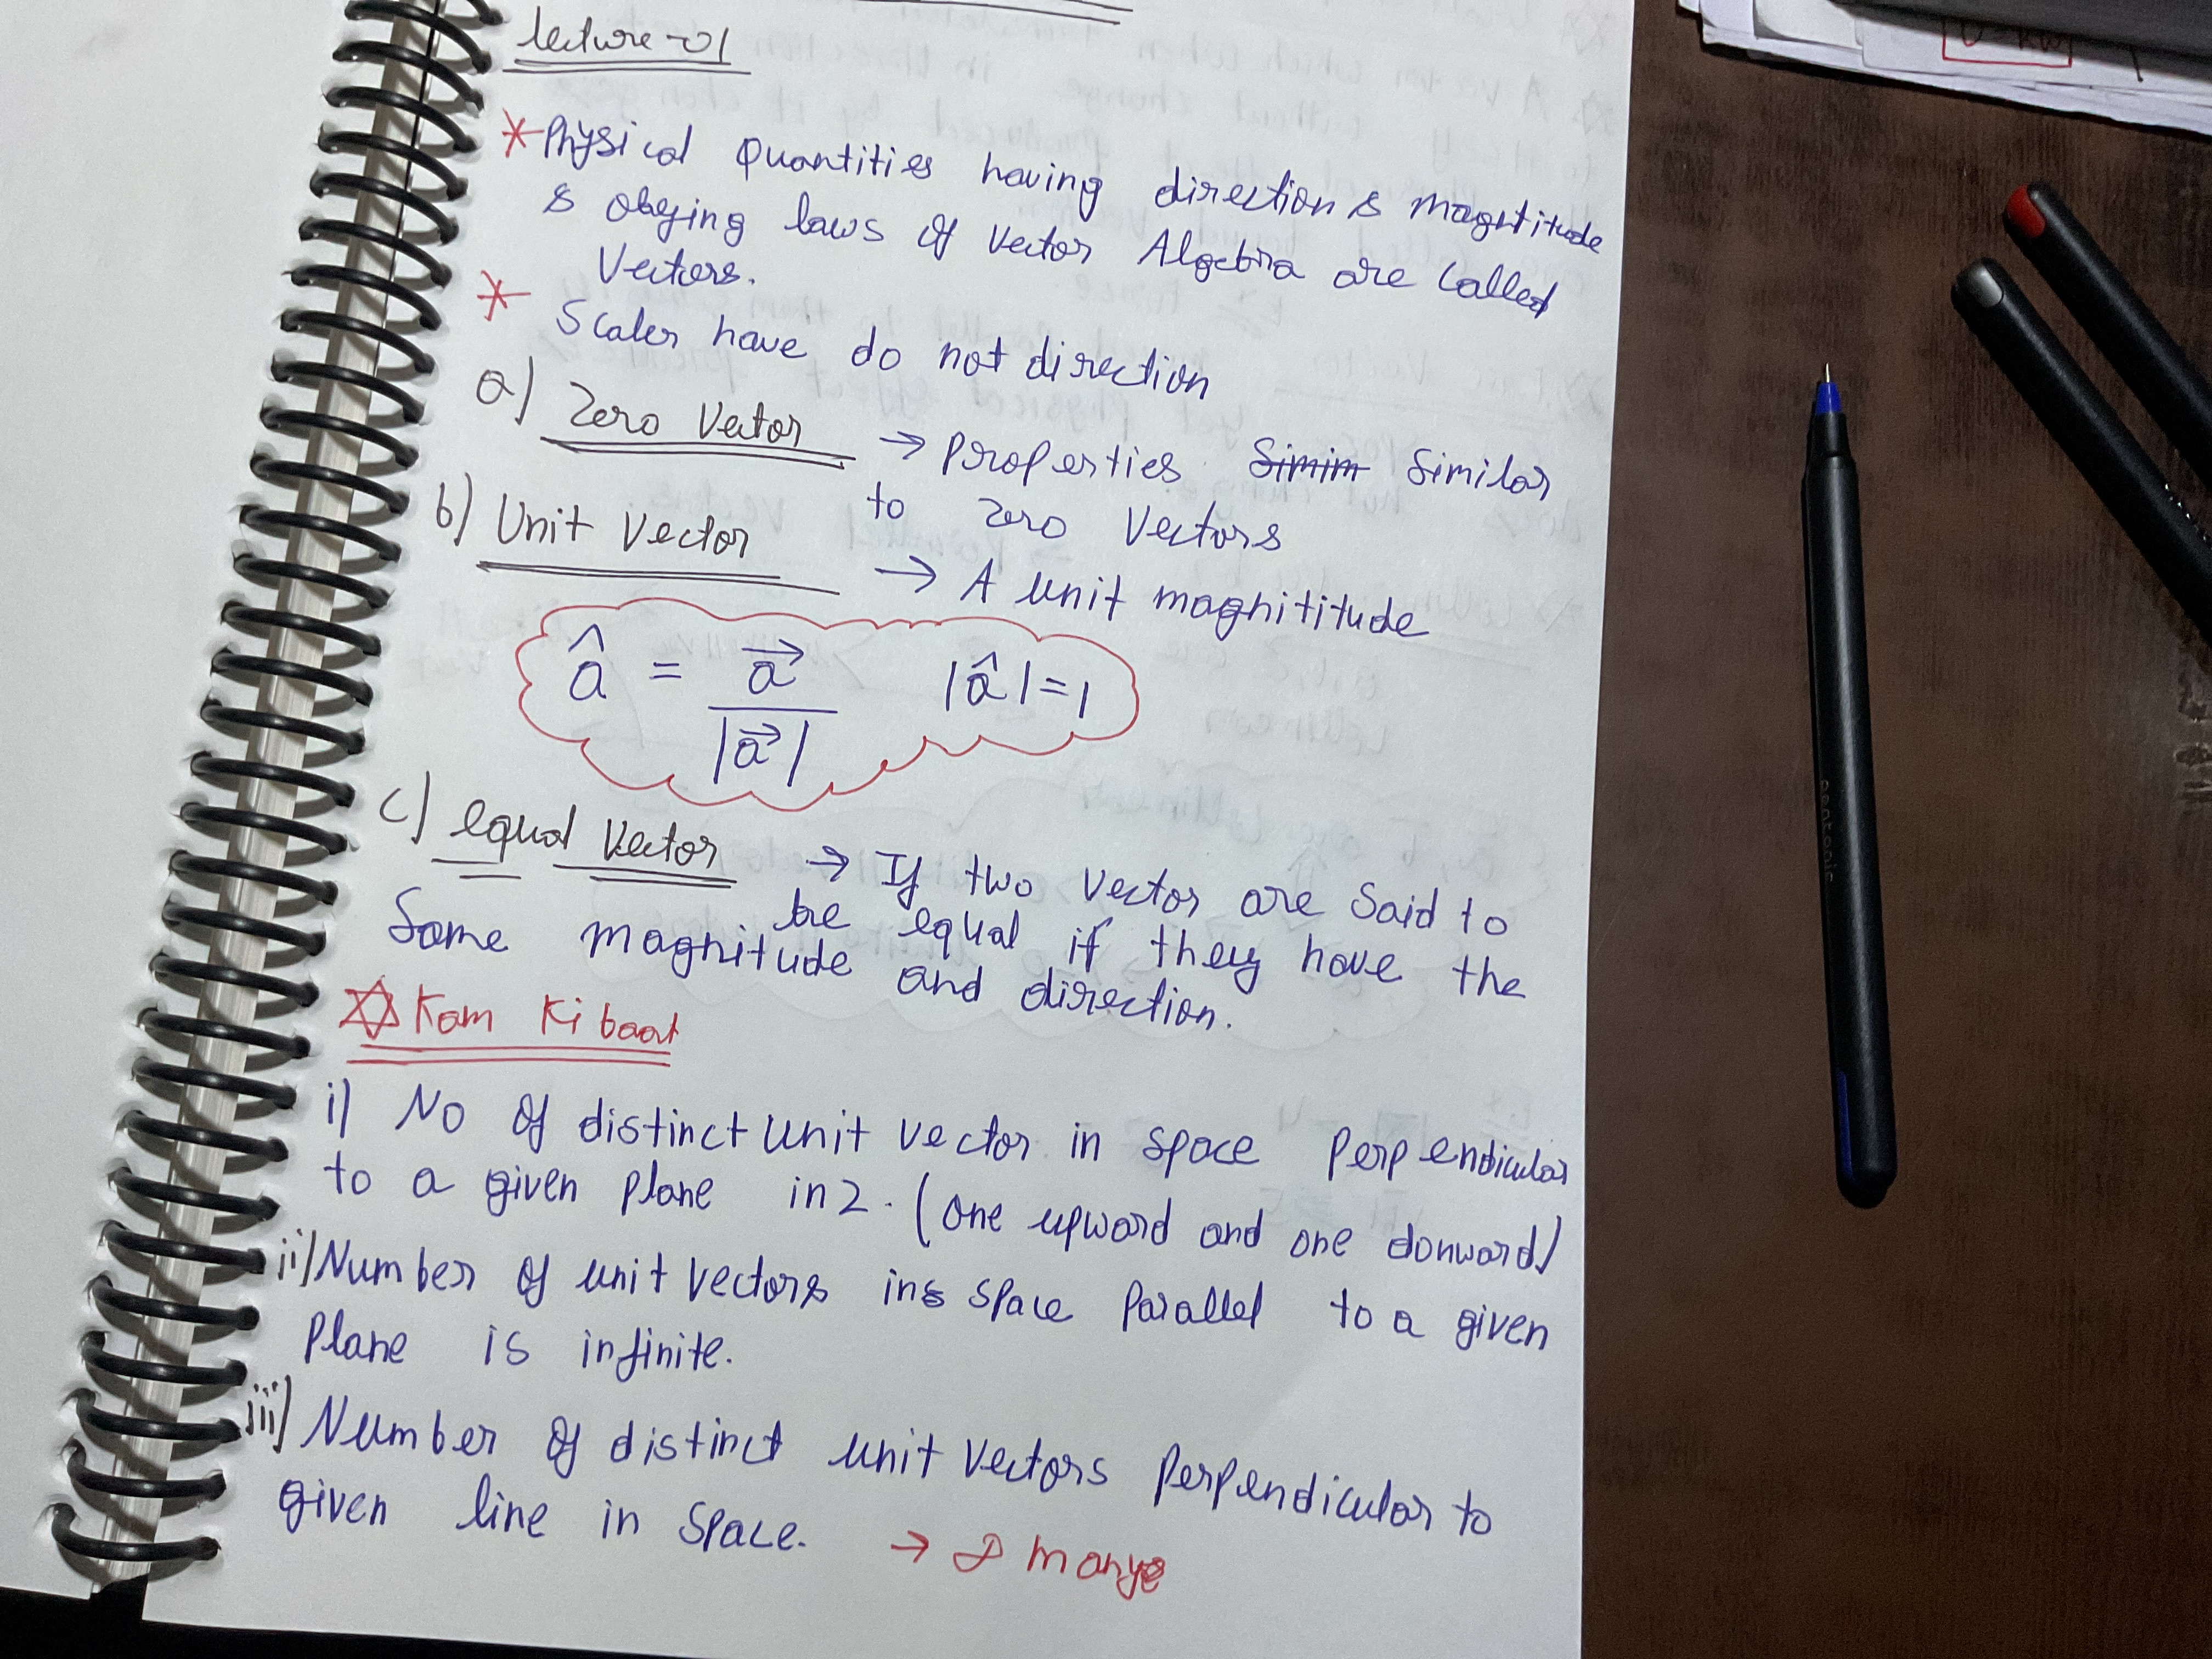 lecture-01
* Physical Quantities having direction & magntitude
& obeying laws of vector Algebra are called
Vectors.
* Scaler have do not direction
a) Zero Vector → Properties Simim Similar
to zero Vectors
b) Unit Vector → A unit magnititude
â = a⃗ / |a⃗| |â| = 1
c) equal Vector → If two vector are said to
be equal if they have the
Same magnitude and direction.
✡ Kam Ki baat
i) No of distinct unit vector in space perpendicular
to a given plane in 2. (one upward and one donward)
ii) Number of unit vectors ins space parallel to a given
plane is infinite.
iii) Number of distinct unit vectors perpendicular to
given line in space. → ∞ many
pentonic